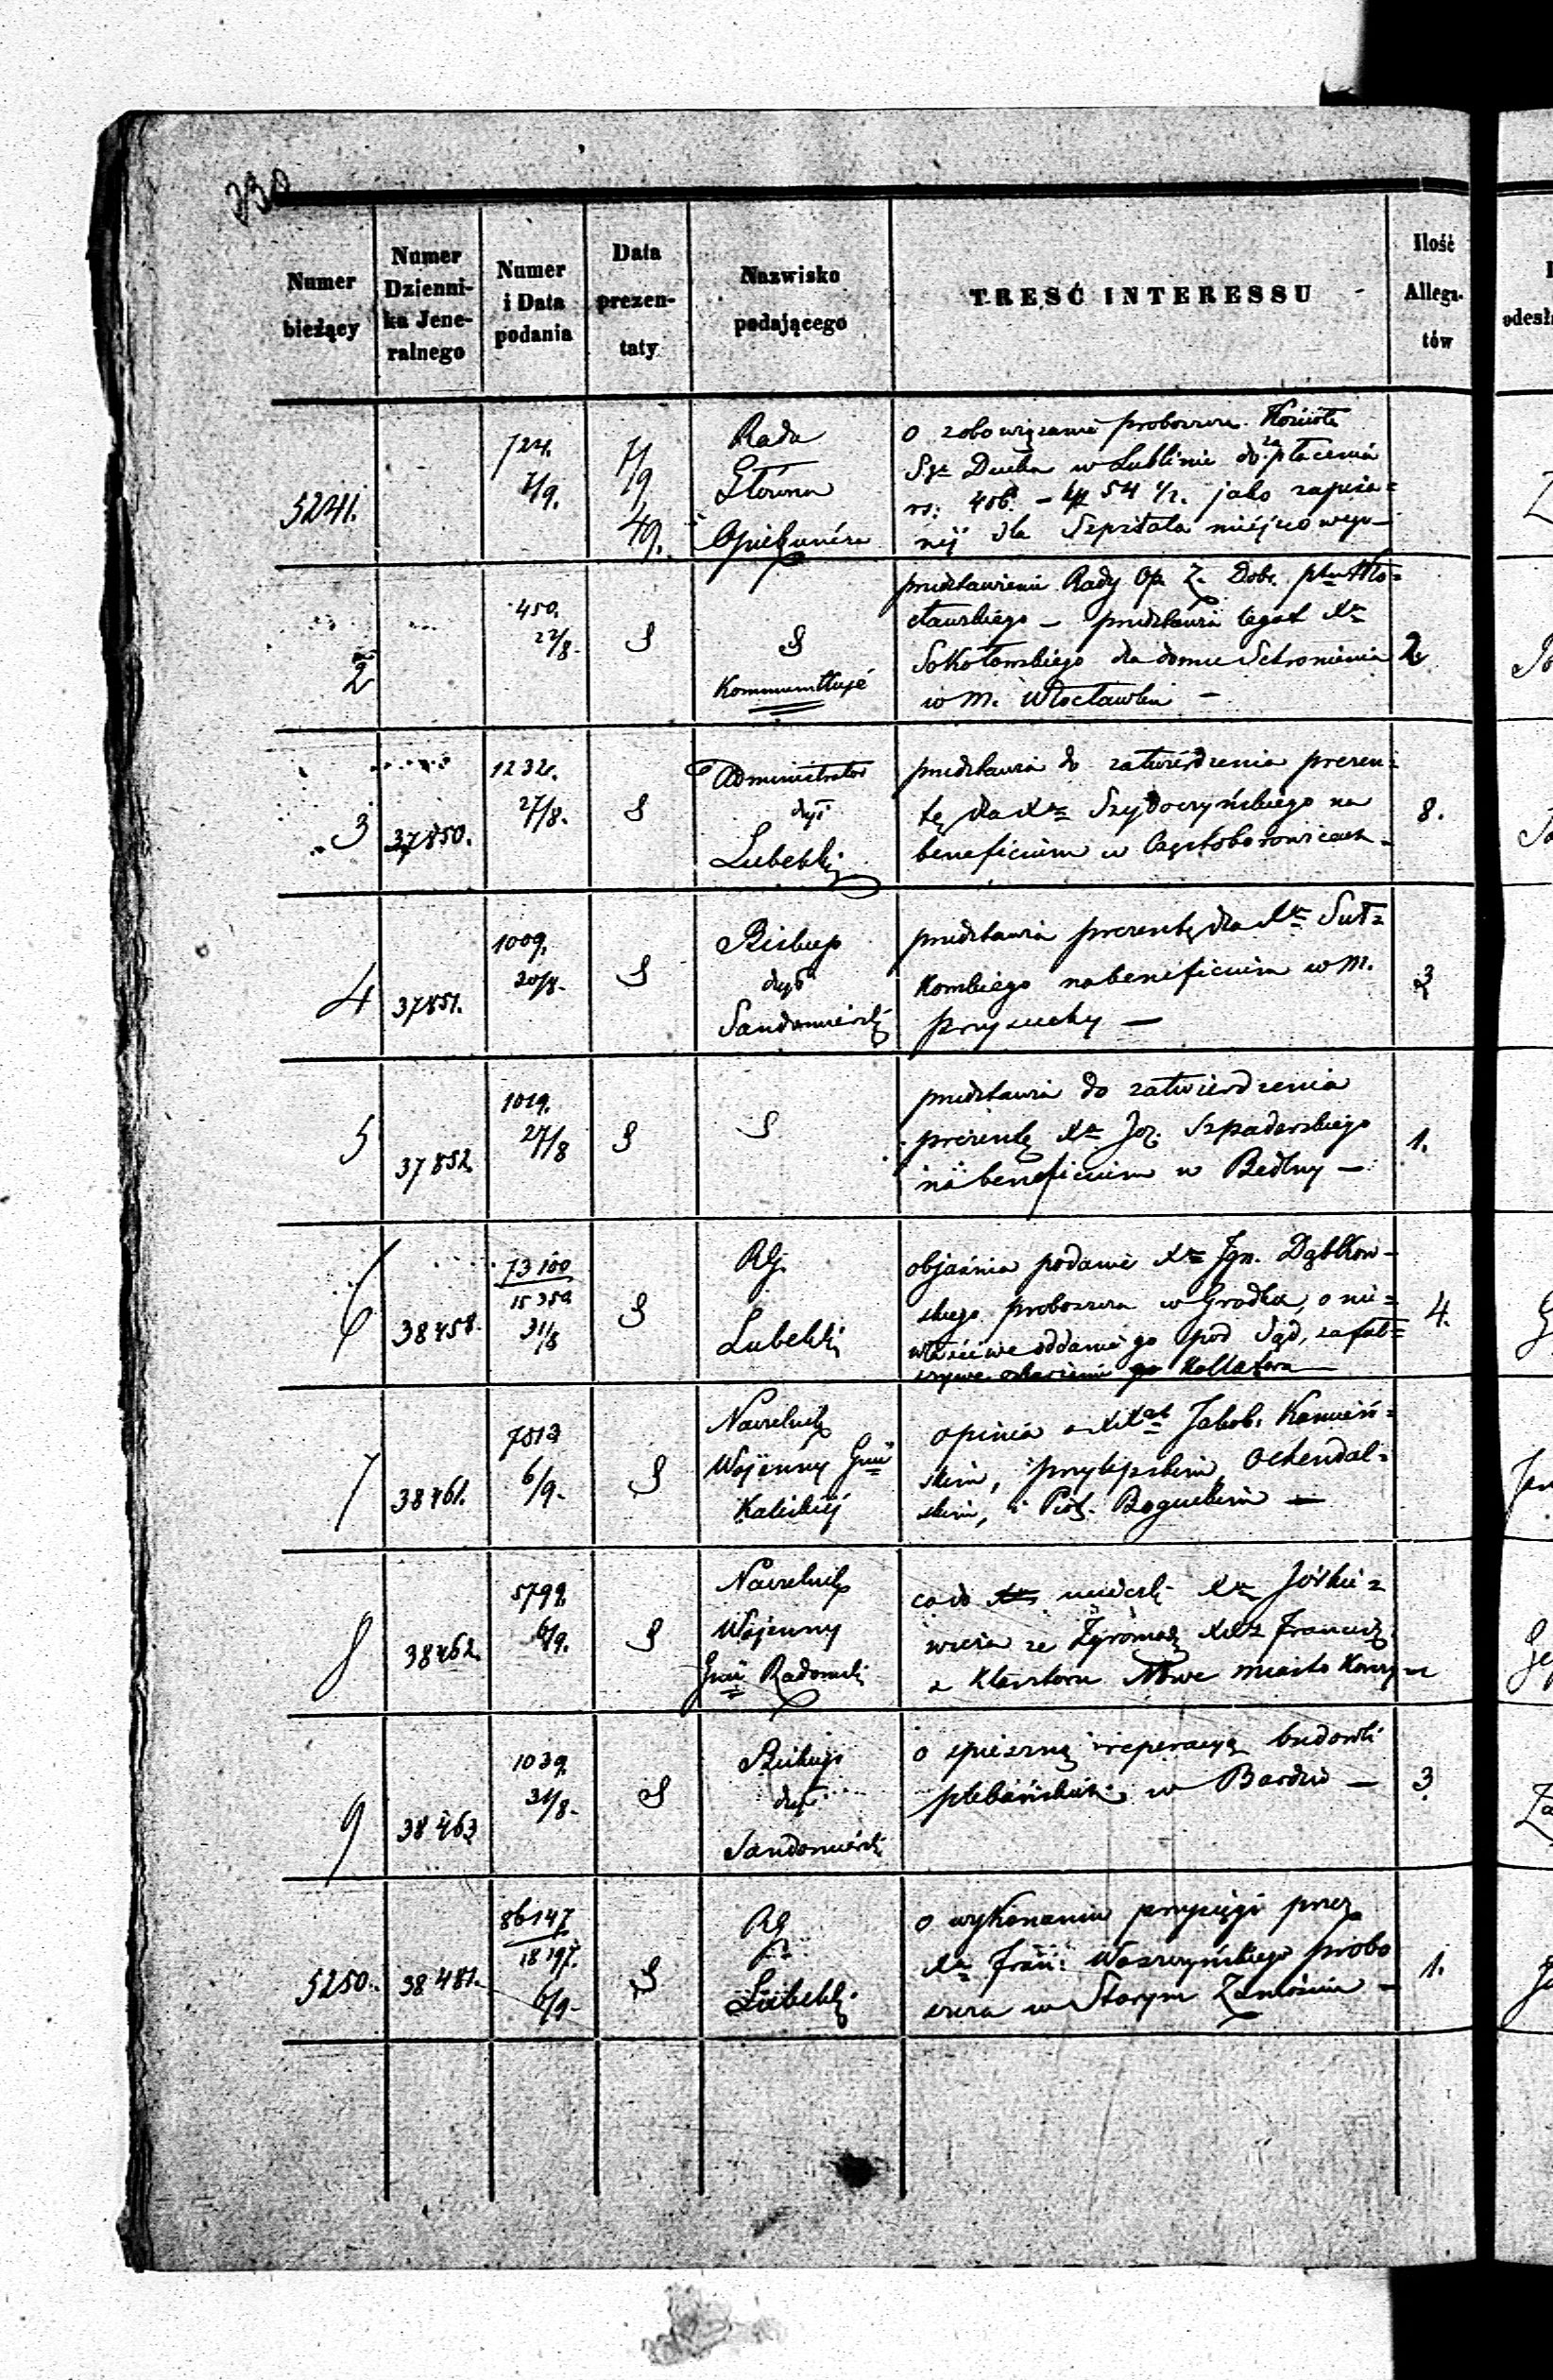 230
Numer bieżący
Numer Dzienni-ka Jene-ralnego
Numer i Data podania
Data prezen-taty
Nazwisko podającego
TREŚĆ INTERESSU
Ilość Allega-tów
5241.
724.
7/9.
7/9
49.
Rada
Główna
Opiekuńcza
o zobowiązanie proboszcza Kościoła
Sgo Ducha w Lublinie do zapłacenia
rs: 406. – kp 54 1/2. jako zapisa=
nej dla Szpitala miejscowego –
2
450.
22/8.
S
S
Kommunikuje
przedstawienie Rady Op. Z. Dobr. ptu Wło=
cławskiego – przedstawia legat Xa
Sokołowskiego dla domu Schronienia
w M. Włocławku –
2.
3
37850.
1232.
27/8.
S
Administrator
dyi
Lubelski
przedstawia do zatwierdzenia prezen=
tę dla Xa Szydoczyńskiego na
beneficium w Częstoborowicach –
8.
4
37851.
1009.
20/8.
S
Biskup
dyi
Sandomierski
przedstawia prezentę dla Xa Sut=
kowskiego na beneficium w M.
Przysuchy –
3
5
37852.
1019.
27/8
S
S
przedstawia do zatwierdzenia
prezentę Xa Józ. Szpaderskiego
na beneficium w Bedlny –
1.
6
38458.
73100
15350
31/8
S
RG.
Lubelski
objaśnia podanie Xa Ign. Dąbkow=
skiego proboszcza w Gródku, o nie=
właściwe oddanie go pod Sąd, za fał=
szywe oskarżenie Kollatora –
4.
7
38461.
7513
6/9.
S
Naczelnik
Wojenny Gnii
Kaliskiej
opinia o XXach Jakób. Kamień=
skim, Przylipskim, Ochendal=
skim, i Piotr. Boguckim –
8
38462.
5799.
6/9.
S
Naczelnik
Wojenny
Gnii Radomski
co do ucieczki Xa Jóśkie=
wicza ze Zgromadz. XX Francisz.
z Klasztoru Nowe miasto Korczyn
9
38463
1039.
31/8.
S
Biskup
dyi
Sandomierski
o spieszną reperacyą budowli
plebańskich w Bardzie –
3.
5250.
38481.
86147
18197.
6/9.
S
RG
Lubelski
o wykonaniu przysięgi przez
Xa Fran: Waszczyńskiego probo
szcza w Starym Zamościu –
1.